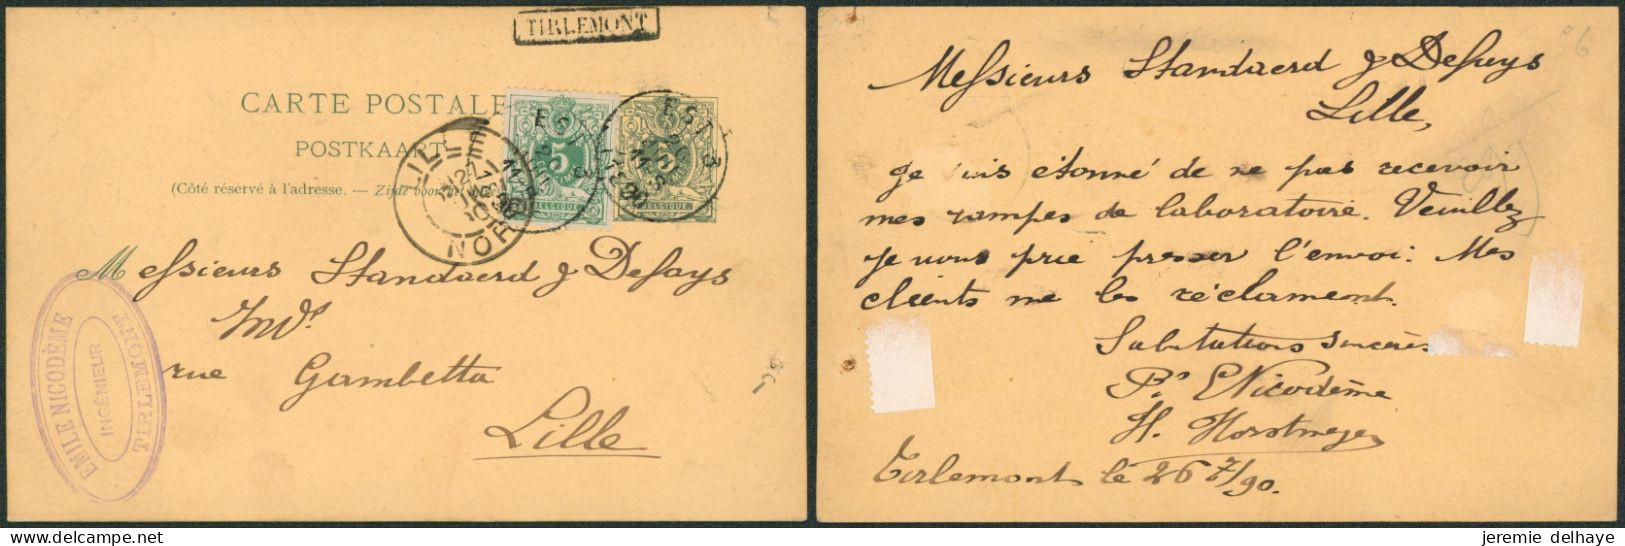 TIRLEMONT
CARTE POSTALE
POSTKAART
(Côté réservé à l'adresse. — Zijde voor
5
BELGIQUE
5
BELGIQUE
EST 3
EST 3
LILLE
NORD
Messieurs Standaerd & Defays
Indls
rue Gambetta
Lille
EMILE NICODÈME
INGÉNIEUR
TIRLEMONT
Messieurs Standaerd & Defays
Lille,
Je suis étonné de ne pas recevoir
mes rampes de laboratoire. Veuillez
je vous prie presser l'envoi: Mes
clients me les réclament.
Salutations sincères
Pr E Nicodème
H. Horstmeyer
Tirlemont le 26 7/90.
jeremie delhaye